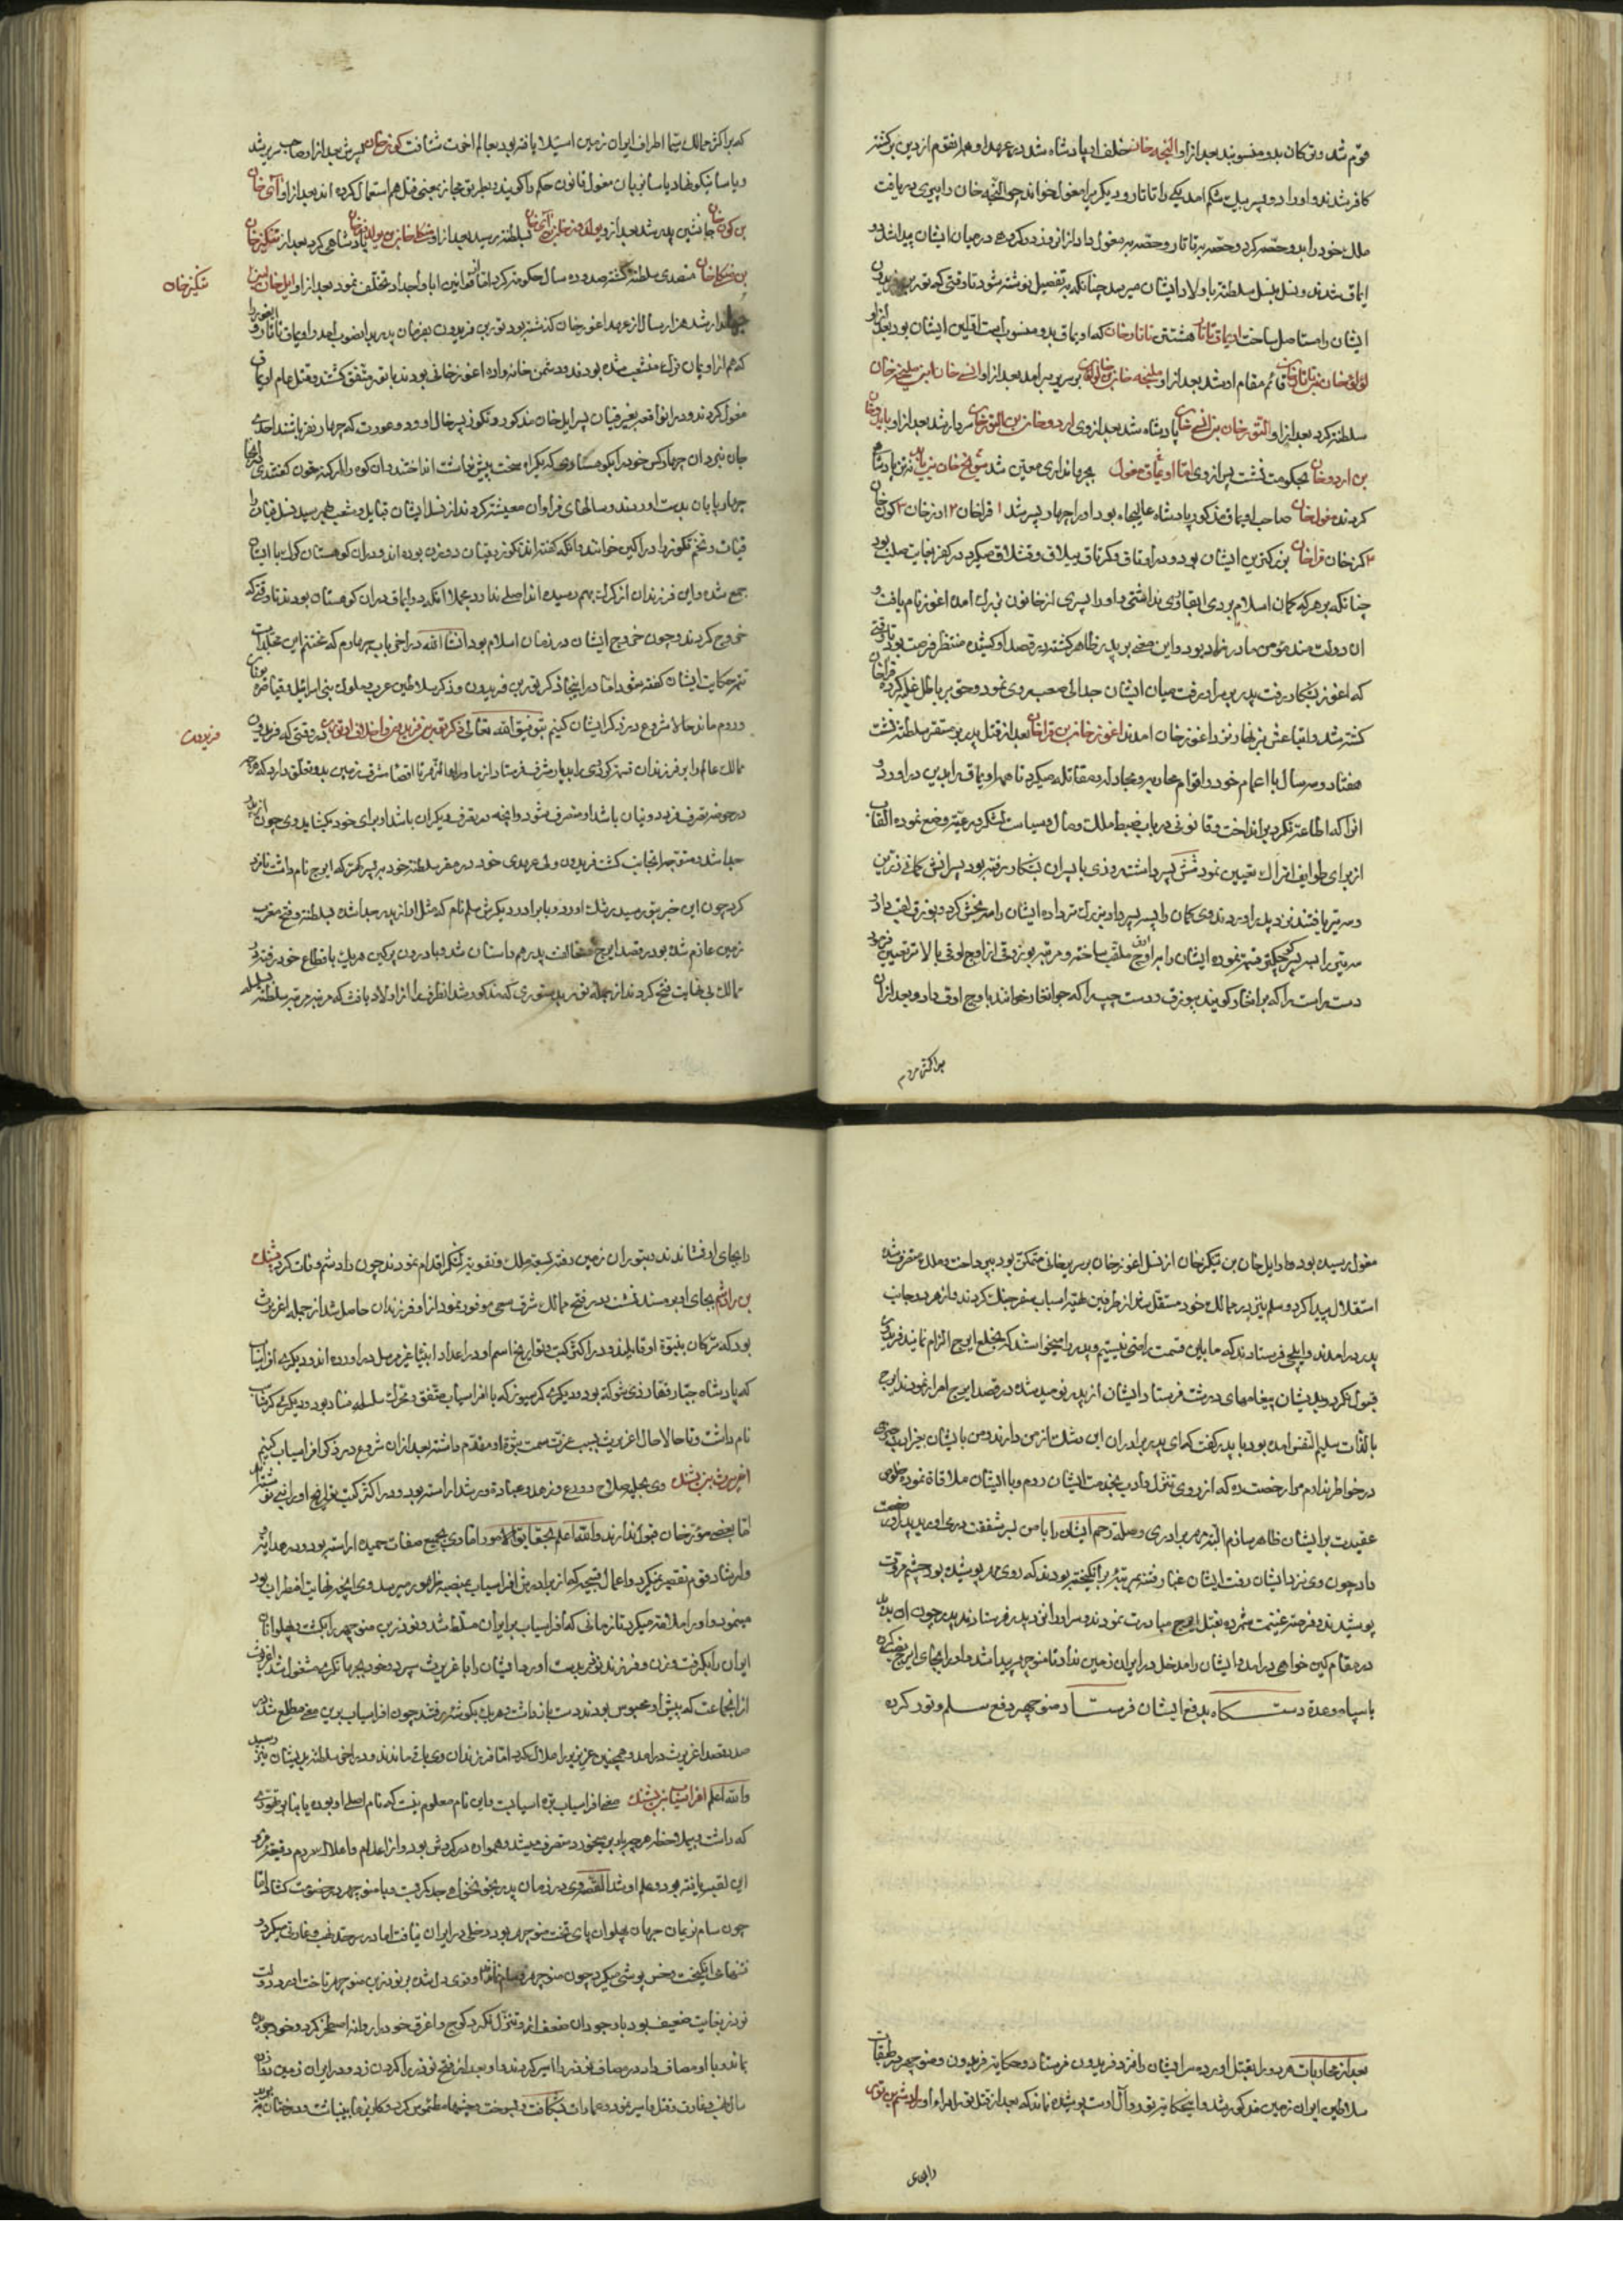 قوم شد و ترکان بدو منسوبند بعد ازو النجه خان خلف او پادشاه شد در عهد او هم انقوم از دین برکشته
کافر شدند و او را دو پسر بیک شکم امد یکی را تاتار و دیکری را مغول خواند چو النجه خان را پیری دریافت
ملک خود را بدو حصه کرد و حصه به تاتار و حصه به مغول داد از انروز دو کروه در میان ایشان پیدا شد و دو
ایماق شدند و نسل بنسل سلطنة باولاد ایشان میرسد چنانکه به تفصیل نوشته شود تا وقتی که تور بن فریدون
ایشان را مستاصل ساخت اویماق تاتار هشت تن تاتار خان که اویماق بدو منسوبست اولین ایشان بود بعد ازو
بوقا خان بن تاتار خان قائم مقام او شد بعد ازو ملیجه خان بن بوقا خان بر سریر برامد بعد ازو انسی خان ابن ملیجه خان
سلطنة کرد بعد ازو التور خان بن انسی خان پادشاه شد بعد ازوی اردو خان بن التور خان سردار شد بعد ازو بایدو خان
بن اردو خان بحکومت نشست پس ازوی اما اویماق مغول بجهانداری معین شد سونج خان بن بایدو نه تن پادشاهی
کردند مغول خان صاحب اویماق مذکور پادشاه عالیجاه بود او را چهار پسر شد ۱ قراخان ۲ اور خان ۳ کوز خان
۴ کر خان قراخان بزرکترین ایشان بود و در اوتاق و کرتاق ییلاق و قشلاق میکرد در کفر بغایت صلب بود
چنانکه بر هر که کمان اسلام بردی ابقا روی نداشتی و او را پسری از خاتون بزرک امده اغوز نام یافت و
ان دولت مند مؤمن مادرزاد بود و این معنی بر پدر ظاهر کشته در قصد او کوشیده منتظر فرصت بود تا وقتی
که اغوز بشکار رفت پدر بر سر او رفت میان ایشان جدالی صعب روی نمود و حق بر باطل غلبه کرده قراخان
کشته شد و اتباعش بزنهار نزد اغوز خان امدند اغوز خان بن قراخان بعد از قتل پدر بر مستقر سلطنة نشست
هفتاد و سه سال با اعمام خود و اقوام محاربه و مجادله و مقاتله میکرد تا همه اویماق را بدین در اورد و
انرا که اطاعة نکرد برانداخت و قانونی در باب ضبط ملک و مال و سیاست لشکر و رعیة وضع نموده القاب
از برای طوایف اتراک تعیین نمود شش پسر داشت روزی با پسران بشکار رفته بود پسرانش کمانی زرین
و سه تیر یافتند نزد پدر اوردند وی کمان را بسه پسر داد بزرک تر و او ایشان را سه بخش کرد و بوزق لقب داد
سه تیر را بسه پسر کوچکتر قسمة نموده ایشان را به اوچ اوق ملقب ساخته و مرتبه بوزوق از اوچ اوق بالاتر تعیین فرمود
دست راست را که برانغار کویند ببوزق و دست چپ را که جوانغار خوانند باوچ اوق داد و بعد ازان
براکثر مردم
که بر اکثر ممالک سیما اطراف ایران زمین استیلا یافته بود بعالم اخرت شتافت کون خان پسرش بعد ازو صاحب سریر شد
و یاسا نیکو نهاد یاسا بزبان مغول قانون حکم را کویند و بطریق مجاز بمعنی قتل هم استعمال کرده اند بعد ازو ای خان
بن کون خان جانشین پدر شد بعد ازو یولدوز خان بن ای خان بسلطنة رسید بعد ازو منکلی خان بن یولدوز خان پادشاهی کرد بعد ازو تنکیز خان
بن منکلی خان متصدی سلطنة کشته صد و ده سال حکومة کرد اما از قوانین ابا و اجداد تخلف نمود بعد ازو ایل خان ابن
تنکیز خان
جهاندار شد هزار سال از عهد اغوز خان کذشته بود تور بن فریدون بفرمان پدر بدانصوب امد و اویماق تاتار و ایغور را
که هم از اویمان ترک منشعب شده بودند و دشمن خانواده اغوز خانی بودند با تور متفق کشتند و قتل عام اویماق
مغول کردند و دران واقعه بغیر قیان پسر ایل خان مذکور و نکوز پسر خال او و دو عورت که چهار نفر باشند احدی
جان نبرد ان چهار کس خود را بکوهستان رسانیدند که یکراه سخت بیش نداشت انداختند و ان کوه را ارکنه قون کفتندی انجا
چهارپایان بدست اوردند و سالهای فراوان معیشة کردند از نسل ایشان قبایل و شعب بهم رسید نسل قیان را
قیات و تخم نکوز را درلکین خوانند و انکه کفته اند نکوز و قیان دو زن بوده اند و دران کوهستان کرک با ایشان
جمع شده و این فرزندان از کرک بهم رسیده اند اصلی ندارد مجملا انکه دو ایماق دران کوهستان بودند تا وقتی که
خروج کردند و چون خروج ایشان در زمان اسلام بود انشاء الله در اخر باب چهارم که مختتم این مجلداست
تتمه حکایت ایشان کفته شود اما در اینجا ذکر تور بن فریدون و ذکر سلاطین عرب و ملوک بنی اسرائیل و قیاصره یونان
و روم ماند حالا شروع در ذکر ایشان کنیم بتوفیق الله تعالی ذکر تور بن فریدون و احوال او تور در وقتی که فریدون
فریدون
ممالک عالم را بر فرزندان قسمة کردی را بدیار شرق فرستاد از ماوراء النهر تا اقصاء شرق زمین بدو تعلق دارد که هرچه
در حوزه تصرف فریدونیان باشد او متصرف شود و انچه در تصرف دیکران باشد او برای خود بکشاید وی چون از پدر
جدا شد و متوجه انجانب کشت فریدون ولی عهدی خود در مقر سلطنة خود به پسر کهتر که ایرج نام داشت نامزد
کرد چون این خبر بتور رسید برشک اورد و با برادر دیکرش سلم نام که مثل او از پدر جدا شده بسلطنة و فتح مغرب
زمین عازم شده بود در قصد ایرج و مخالفت پدر همداستان شد و با درون پرکین هریک باقطاع خود رفته و
ممالک بی نهایت فتح کردند از جمله تور بدستوری که مذکور شد انطرف را از اولاد یافث که مرتبه مرتبه سلطنة قبیله
مغول رسیده بود و ایل خان بن تنکیز خان از نسل اغوز خان بر سریر خانی متمکن بود بپرداخت و ملک متصرف شده
استقلال پیدا کرد و سلم نیز در ممالک خود مستقل شد از طرفین تهیه اسباب سفر جنک کردند و از هر دو جانب
پدر درامدند و ایلچی فرستادند که ما باین قسمت راضی نیستیم و پدر را میخواستند که بخلع ایرج الزام نمایند فریدون
قبول نکرد و بدیشان پیغامهای درشت فرستاد ایشان از پدر نومید شده در قصد ایرج اصرار نمودند ایرج
بالذات سلیم النفس امده بود با پدر کفت که ای پدر برادران این رشک از من دارند و من بایشان بجز ادب چیزی
در خواطر ندارم مرا رخصت ده که از روی تنزل و ادب بخدمت ایشان روم و با ایشان ملاقاة نموده خلوص
عقیدت بر ایشان ظاهر سازم البته مهر برادری و صله رحم ایشان را با من بسر شفقت درارد پدر رخصت
داد چون وی نزد ایشان رفت ایشان غبار فتنه بمرتبه برانکیخته بودند که روی مهر پوشیده بود چشم مروت
پوشیدند و فرصة غنیمت شمرده بقتل ایرج مبادرت نمودند و سر او را نزد پدر فرستادند پدر چون ان بدید
در مقام کین خواهی درامد و ایشان را مدخل در ایران زمین نداد تا منوچهر پیدا شد و او را بجای ایرج نصب کرده
با سپاه و عدة دستکاه بدفع ایشان فرستاد منوچهر دفع سلم و تور کرده
بعد از محاربات هر دو را بقتل اورده سر ایشان را نزد فریدون فرستاد و حکایة فریدون و منوچهر در طبقات
سلاطین ایران زمین مذکور شد و اینحکایة تور و ال اوست پوشیده نماند که بعد از قتل تور امراء او زادشم بن تور
را بجای
را بجای او نشاندند و بتوران زمین رفته بسعة ملک و تقویة لشکر اقدام نمودند چون زادشم وفات کرد پشنک
بن زادشم بجای او بر مسند نشست و در فتح ممالک شرق سعی موفور نمود از او فرزندان حاصل شد از جمله اغریرث
بود که ترکان بنبوة او قایلند و در اکثر کتب و تواریخ اسم او در اعداد انبیا غیر مرسل در اورده اند و دیکری افراسیاب
که پادشاه جبار قهار ذی شوکة بود و دیکری کرسیوز که با افراسیاب متفق و محرک سلسله فساد بود و دیکری کرشاسب
نام داشت و تا حالا حال اغریرث بسبب عزت سمت نبوة او مقدم داشته بعد ازان شروع در ذکر افراسیاب کنیم
اغریرث بن پشنک وی بحلیه صلاح و ورع و زهد و عبادة و رشد اراسته بود و در اکثر کتب تواریخ او را نبی نوشته اند
اما بعضی مورخان قبول ندارند و الله اعلم بحقایق الامور اما وی بجمیع صفات حمیده اراسته بود و در هدایة
و ارشاد قوم تقصیر نمیکرد و اعمال قبیحه که از برادرش افراسیاب بمنصه ظهور میرسید وی انچه نهایت اضطراب بود
مینمود و او را ملامة میکرد تا زمانی که افراسیاب بر ایران مسلط شد و نوذر بن منوچهر را بکشت و پهلوانان
ایران را بکرفت و زن و فرزند نوذر بدست اورد و ایشان را باغریرث سپرد و خود بجهانکیری مشغول شد اغریرث
از انجماعت که پیش او محبوس بودند دست باز داشت و هریک بکوشه رفتند چون افراسیاب برین معنی مطلع شد در
صدد قصد اغریرث درامد و همچنین عزیزی را هلاک کرد اما فرزندان وی باقی ماندند و در اخر سلطنة بدیشان نیز رسید
و الله اعلم افراسیاب بن پشنک معنی افراسیاب پره اسیاست و این نام معلوم نیست که نام اصلی او بوده یا بنا بر تهوری
که داشت و بیملاحظه هرچه باو برمیخورد متصرف میشد و همواره در کردش بود و از اعدام و اهلاک مردم دقیقه فرو
این لقب یافته بود و علم او شد القصه وی در زمان پدر بجنک و جدل می کوشید و با منوچهر در خصومت کشاد اما
چون سام نریمان جهان پهلوان پای تخت منوچهر بود دخلی در ایران نیافت اما در سرحد نهب و غارتی میکرد و
فتنهای انکیخت و خس پوشی میکرد چون منوچهر و سام نماند او قوی دل شده بر نوذر بن منوچهر تاخت اورد و دولت
نوذر بغایت ضعیف بود با وجود ان ضعف او تنزل نکرد و کوچ و اغرق خود را روانه اصطخر کرد و خود جریده
بماند و با او مصاف داد در مصاف نوذر را اسیر کردند و او بعد از فتح نوذر را کردن زد و در ایران زمین تا
سال نهب و غارت و قتل و اسر نمود و عمارات بشکافت و بسوخت و چشمها مطموس کرد و کاریزها بینباشت و درختان ببرید